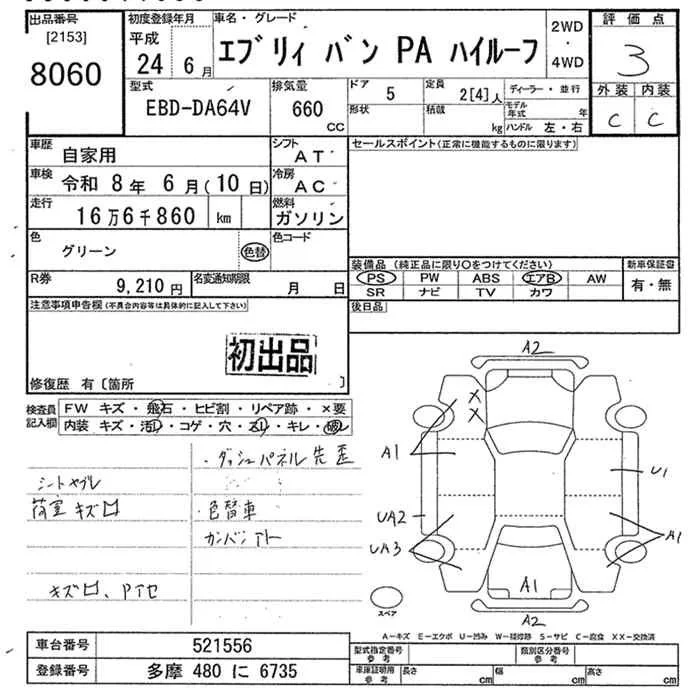 出品番号
[2153]
8060
初度登録年月
平成
24 6月
車名・グレード
エブリィ バン PA ハイルーフ
2WD
・
4WD
評価点
3
外装 内装
C C
型式
EBD-DA64V
排気量
660
CC
ドア
5
形状
定員
2[4]人
積載
kg
ディーラー・並行
モデル年式 年
ハンドル 左・右
車歴
自家用
シフト
AT
車検
令和 8年 6月(10日)
冷房
AC
走行
16万6千860 km
燃料
ガソリン
色
グリーン
色替
色コード
R券
9,210円
名変通知期限
月 日
セールスポイント(正常に機能するものに限ります)
装備品 (純正品に限り○をつけてください)
新車保証書
PS PW ABS エアB AW
有・無
SR ナビ TV カワ
後日品
注意事項申告欄(不具合内容等は具体的に記入して下さい)
初出品
修復歴 有〔箇所 〕
検査員記入欄
FW キズ・飛石・ヒビ割・リペア跡・×要
内装 キズ・汚レ・コゲ・穴・スレ・キレ・破レ
・ダッシュパネル先歪
シートヤブレ
荷室キズ凹
・色替車
カンバンアト
キズ凹、
A2
X
X
A1
U1
UA2
UA3
A1
A1
A2
スペア
A-キズ E-エクボ U-凹み W-補修跡 S-サビ C-腐食 XX-交換済
車台番号
521556
登録番号
多摩 480 に 6735
型式指定番号
参考
類別区分番号
参考
車庫証明用
参考
長さ cm
幅 cm
高さ cm